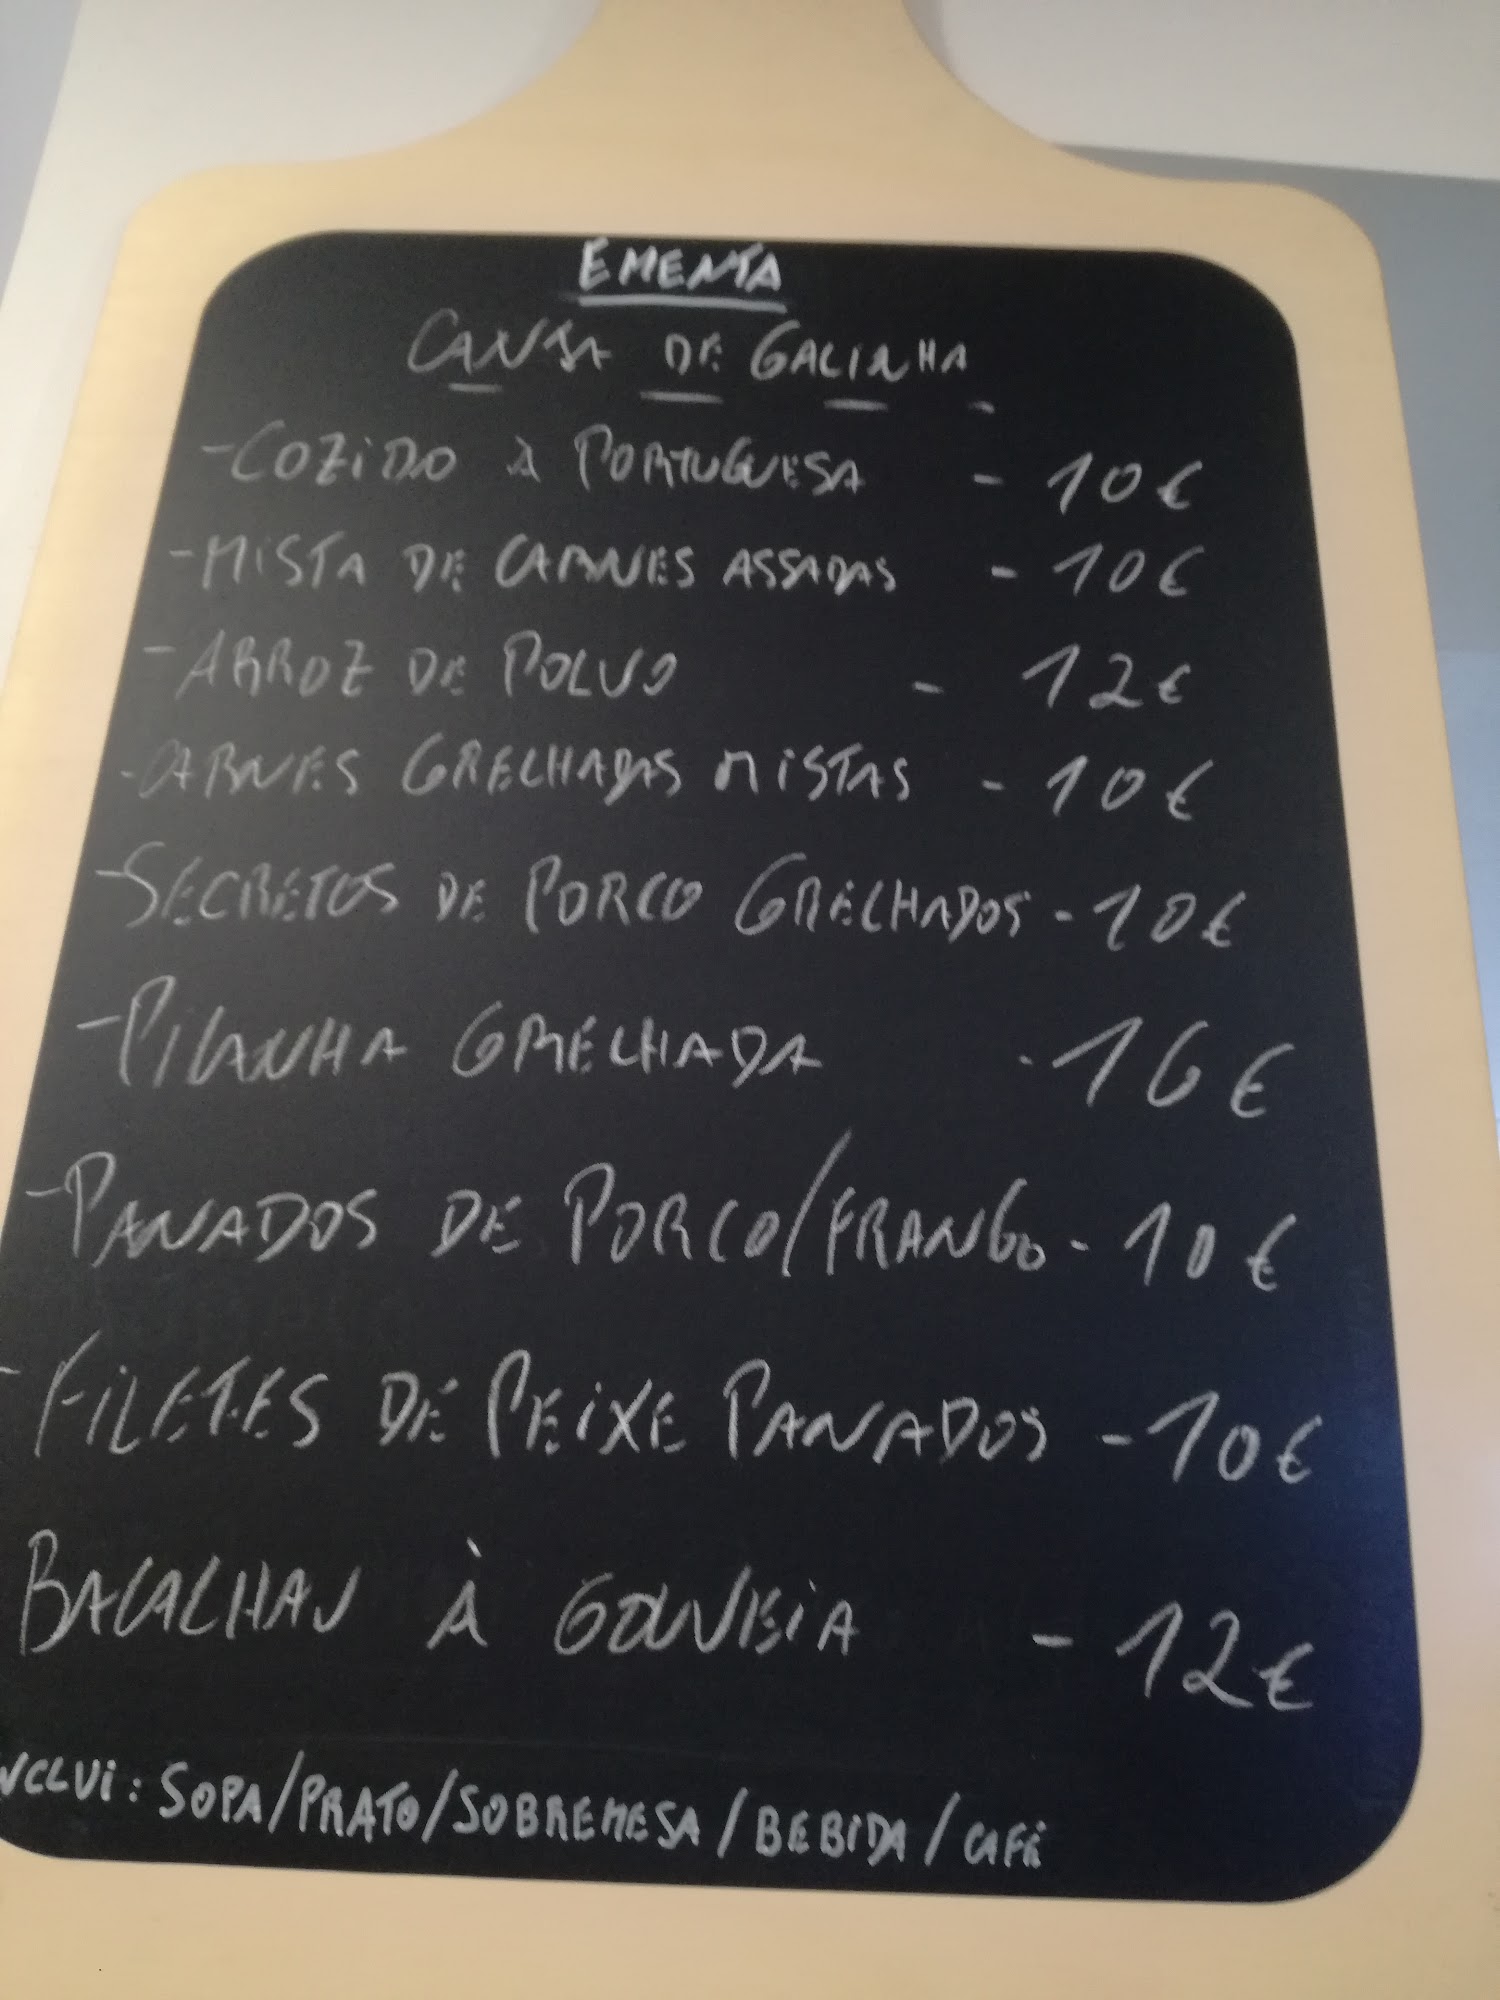 EMENTA
CANJA DE GALINHA
- COZIDO À PORTUGUESA - 10€
- MISTA DE CARNES ASSADAS - 10€
- ARROZ DE POLVO - 12€
- CARNES GRELHADAS MISTAS - 10€
- SECRETOS DE PORCO GRELHADOS - 10€
- PICANHA GRELHADA - 16€
- PANADOS DE PORCO/FRANGO - 10€
- FILETES DE PEIXE PANADOS - 10€
BACALHAU À GOUVEIA - 12€
NCLUI: SOPA/PRATO/SOBREMESA/BEBIDA/CAFÉ